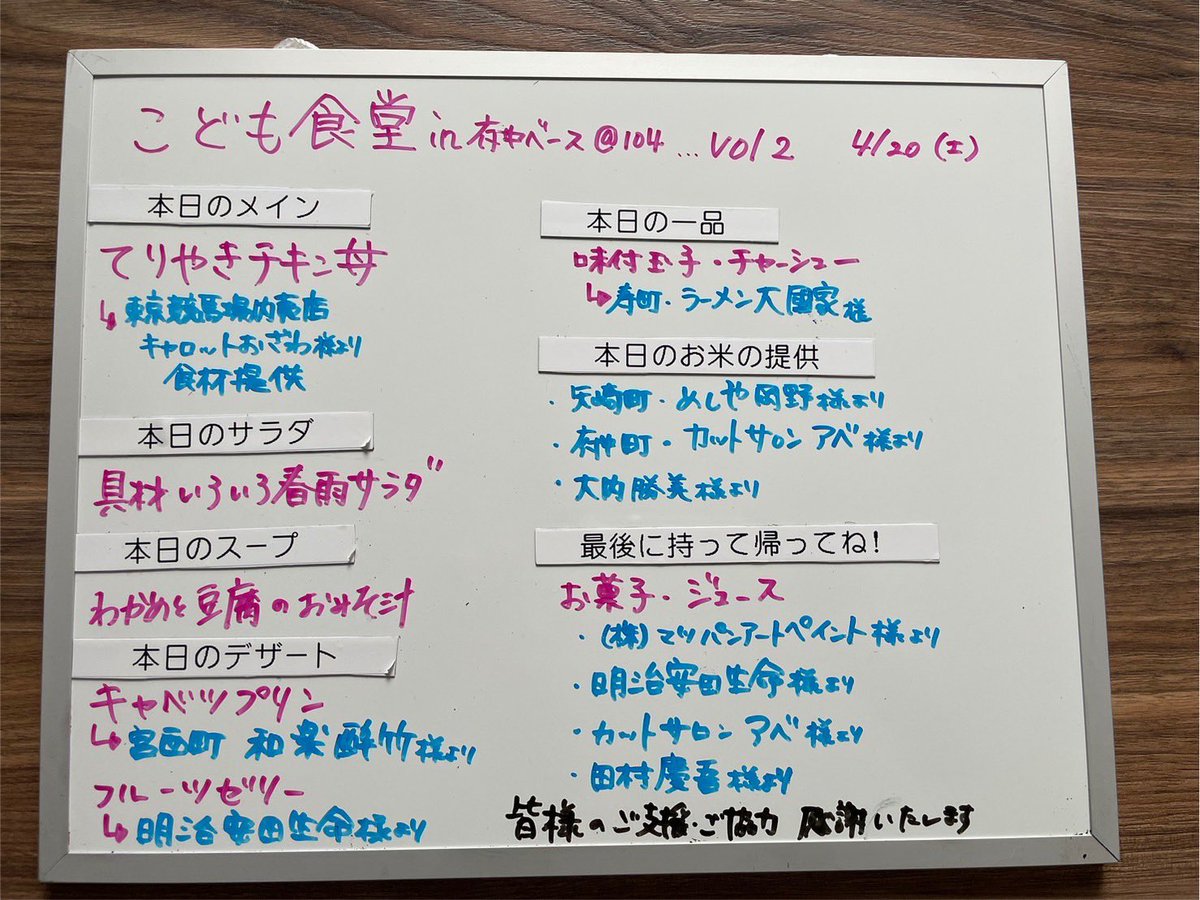 こども食堂 in 府中ベース@104 ... vol 2 4/20 (土)
本日のメイン
てりやきチキン丼
↳東京競馬場内売店
キャロットおざわ様より
食材提供
本日のサラダ
具材いろいろ春雨サラダ
本日のスープ
わかめと豆腐のおみそ汁
本日のデザート
キャベツプリン
↳宮西町 和楽酔竹様より
フルーツゼリー
↳明治安田生命様より
本日の一品
味付玉子・チャーシュー
↳寿町・ラーメン大國家様
本日のお米の提供
・矢崎町・めしや岡野様より
・府中町・カットサロンアベ様より
・大内勝美様より
最後に持って帰ってね!
お菓子・ジュース
・(株)マツバンアートペイント様より
・明治安田生命様より
・カットサロンアベ様より
・田村慶吾様より
皆様のご支援・ご協力 感謝いたします